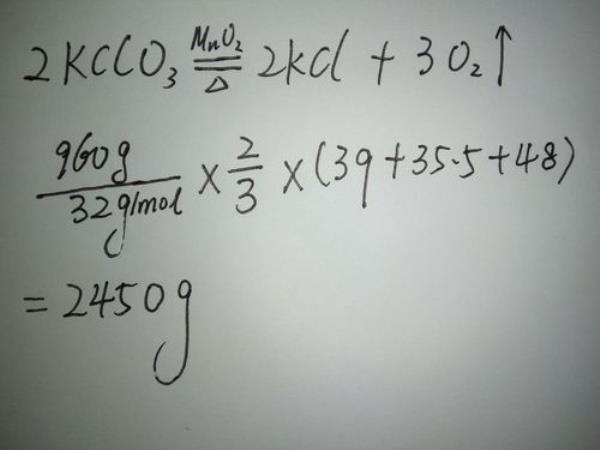 2KClO₃ MnO₂ ══ △ 2KCl + 3O₂↑
960g / 32g/mol × 2/3 × (39+35.5+48)
= 2450g